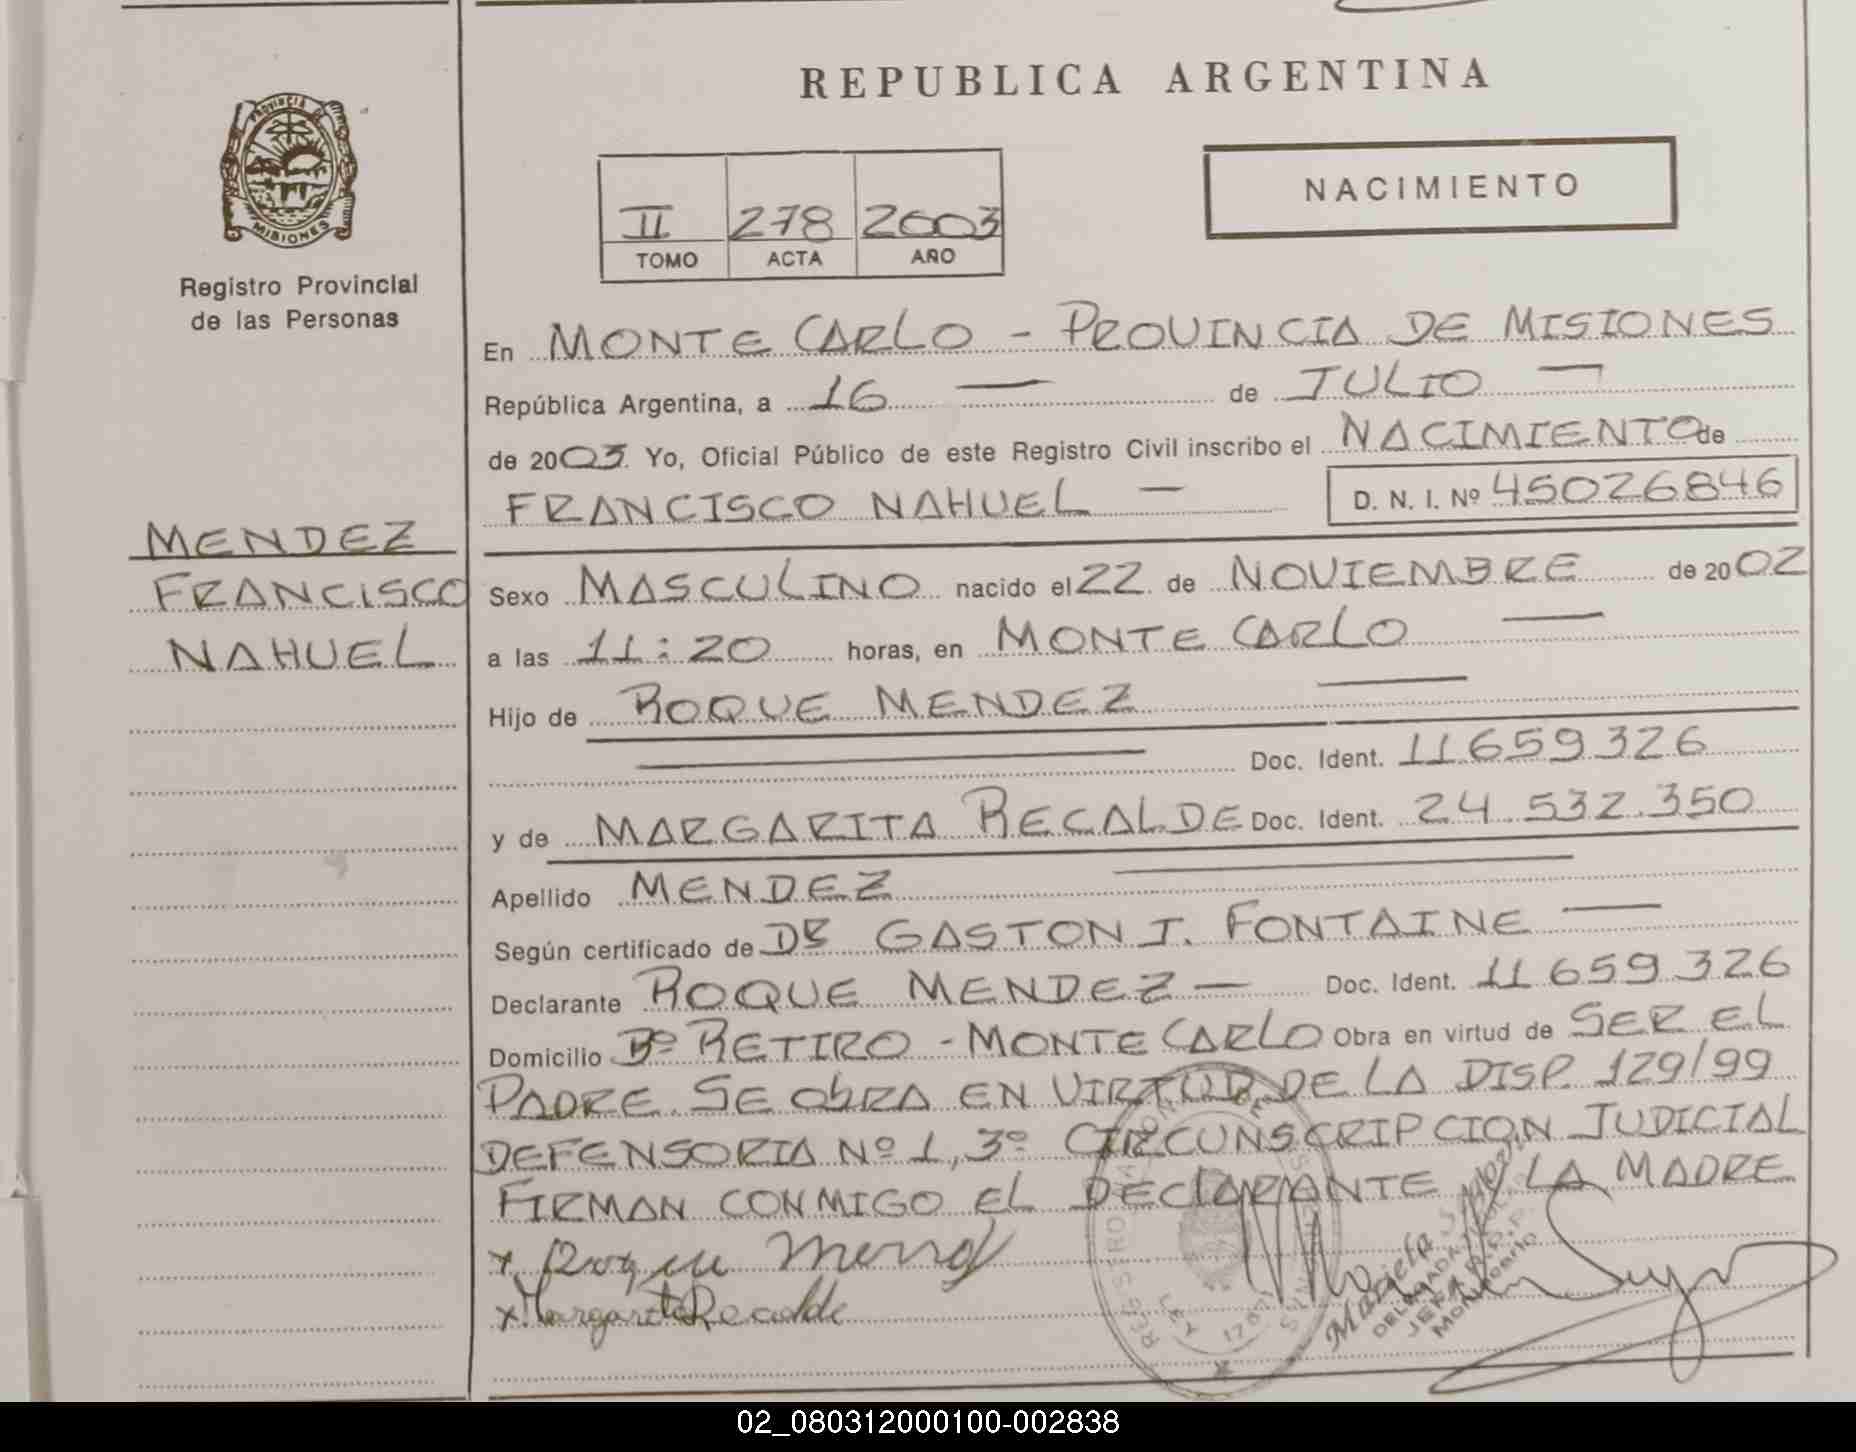 REPUBLICA ARGENTINA
PROVINCIA DE
MISIONES
Registro Provincial
de las Personas
NACIMIENTO
II 278 2003
TOMO ACTA AÑO
En MONTE CARLO - PROVINCIA DE MISIONES
República Argentina, a 16 — de JULIO —
de 2003. Yo, Oficial Público de este Registro Civil inscribo el NACIMIENTO de
FRANCISCO NAHUEL — D. N. I. Nº 45026846
MENDEZ
FRANCISCO
NAHUEL
Sexo MASCULINO nacido el 22 de NOVIEMBRE de 2002
a las 11:20 horas, en MONTE CARLO —
Hijo de ROQUE MENDEZ —
— Doc. Ident. 11659326
y de MARGARITA RECALDE Doc. Ident. 24.532.350
Apellido MENDEZ —
Según certificado de DR GASTON J. FONTAINE —
Declarante ROQUE MENDEZ — Doc. Ident. 11659326
Domicilio Bº RETIRO - MONTE CARLO Obra en virtud de SER EL
PADRE. SE ObRA EN VIRTUD DE LA DISP. 129/99
DEFENSORIA Nº 1, 3º CIRCUNSCRIPCION JUDICIAL
FIRMAN CONMIGO EL DECLARANTE Y LA MADRE
x Roque Mendez
x Margarita Recalde
02_080312000100-002838